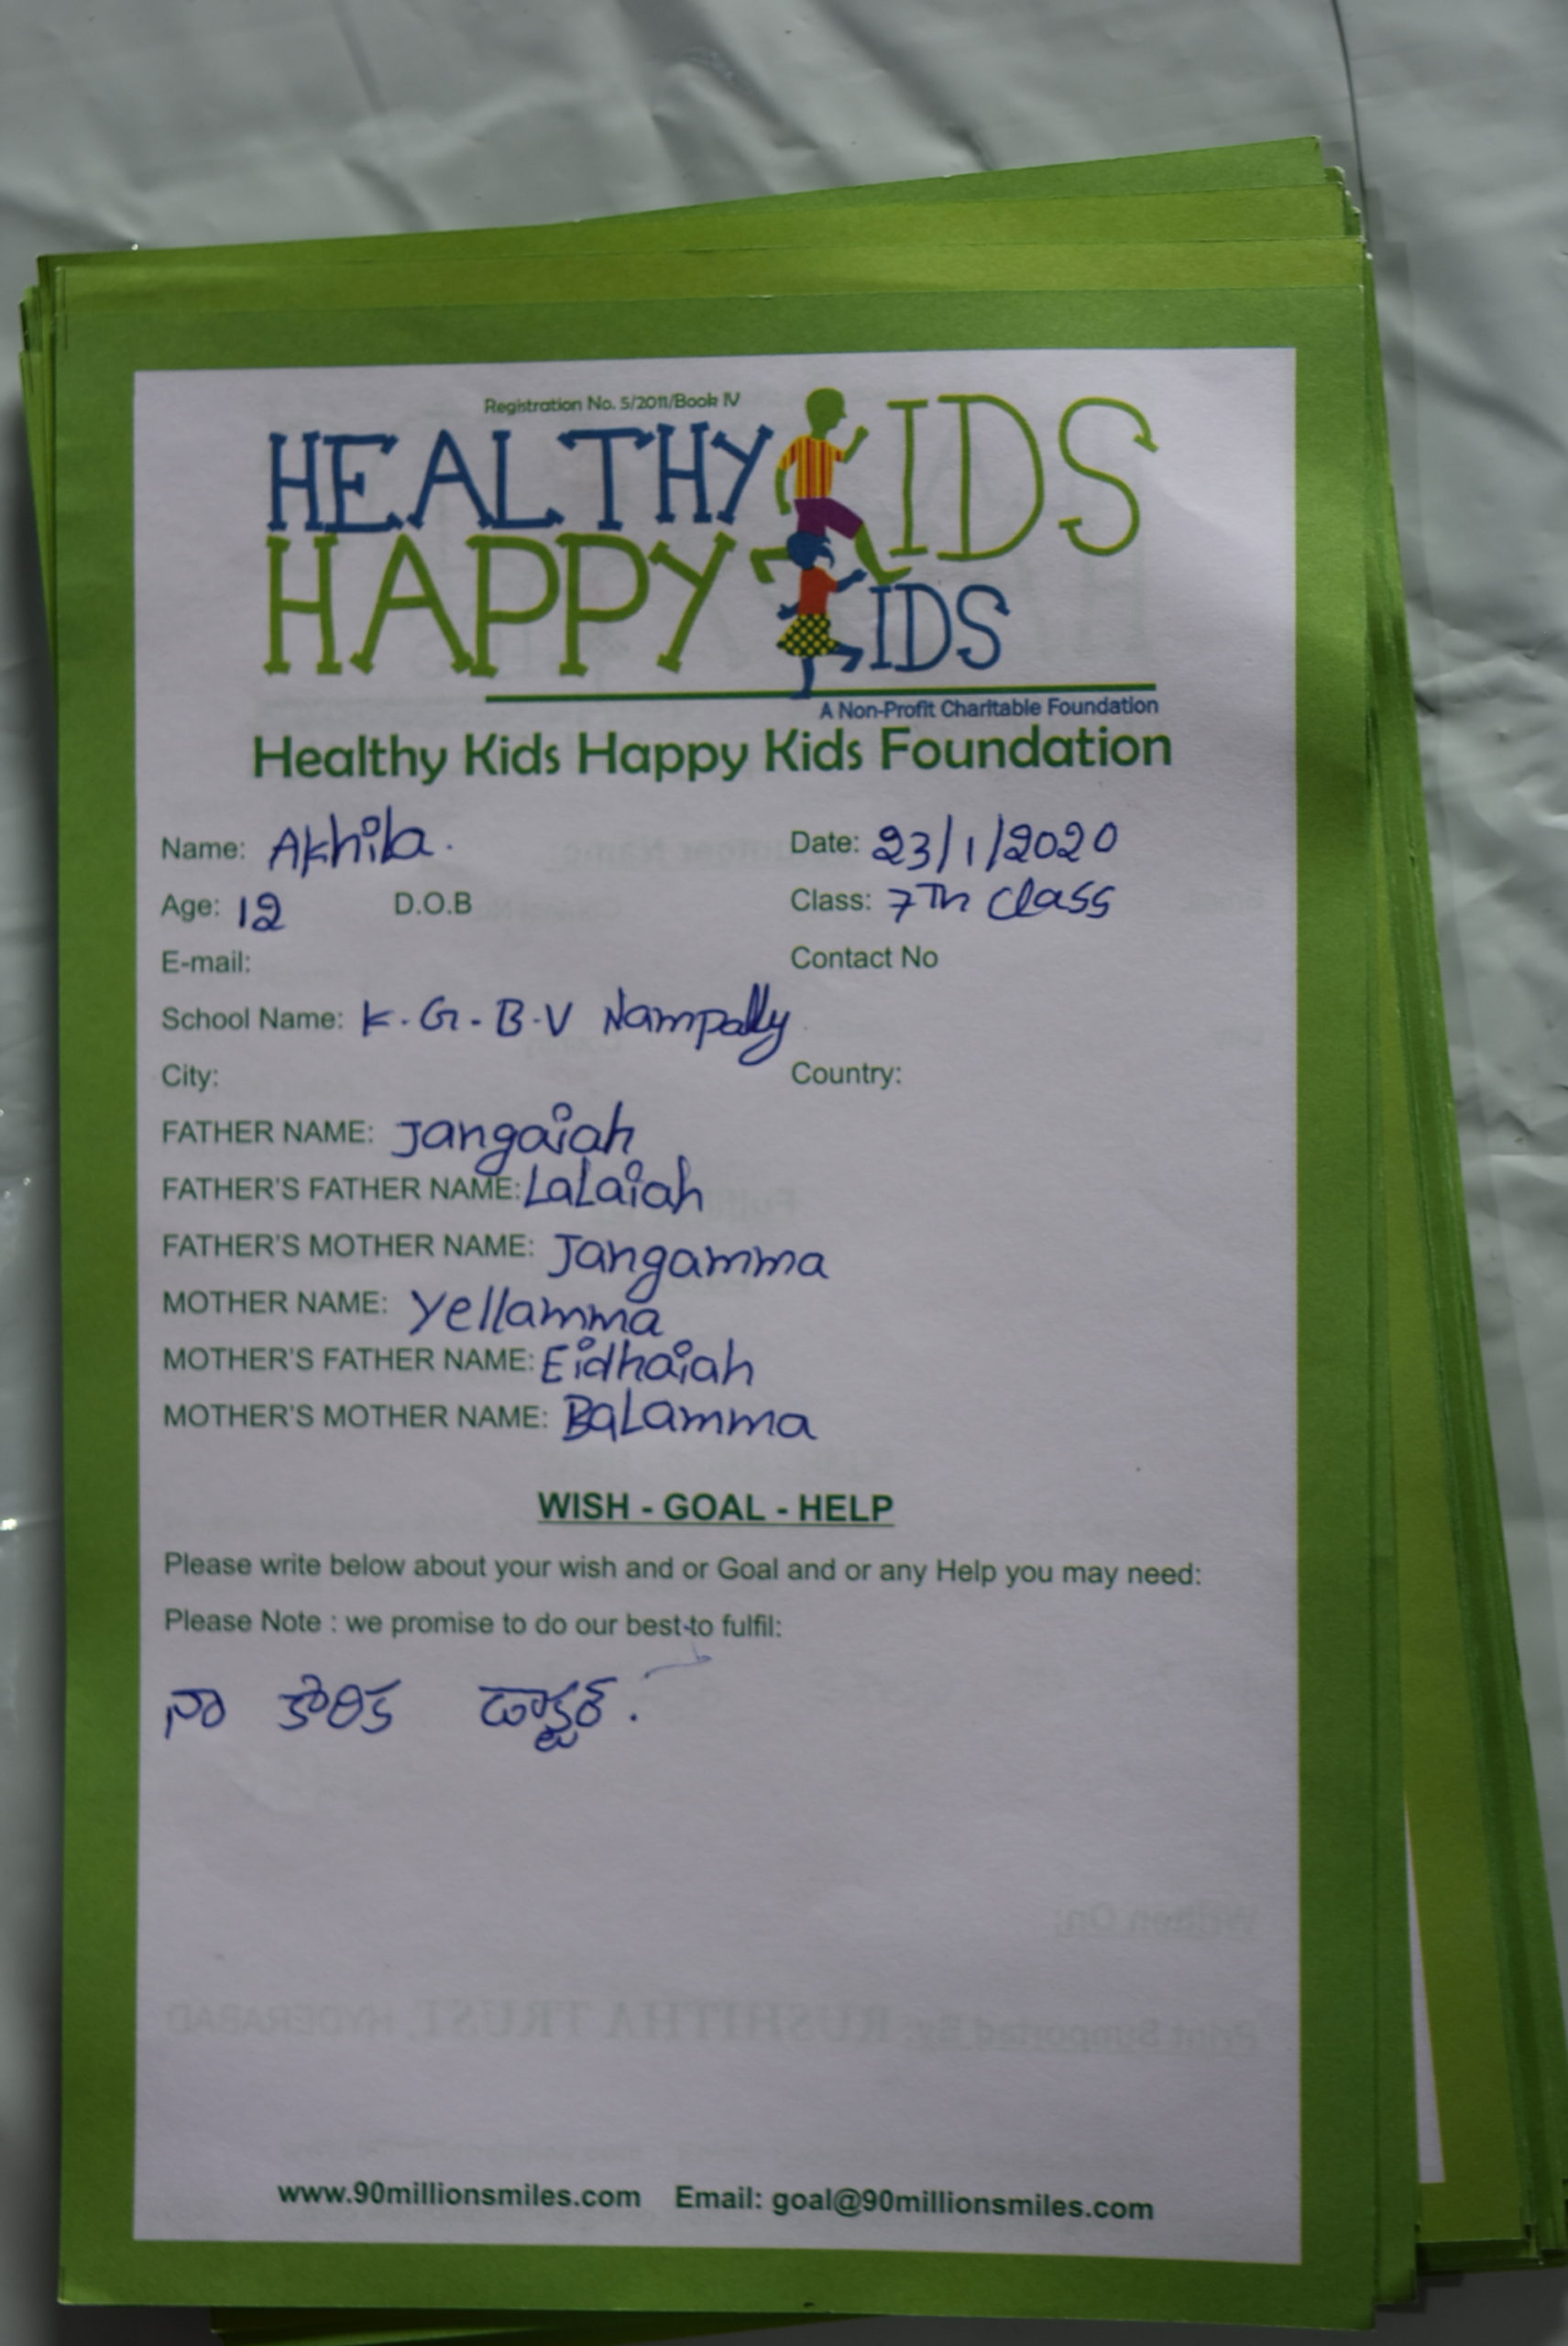 Registration No. 5/2011/Book IV
HEALTHY KIDS
HAPPY KIDS
A Non-Profit Charitable Foundation
Healthy Kids Happy Kids Foundation
Name: Akhila. Date: 23/1/2020
Age: 12 D.O.B Class: 7Th class
E-mail: Contact No
School Name: K.G.B.V Nampally
City: Country:
FATHER NAME: Jangaiah
FATHER'S FATHER NAME: LaLaiah
FATHER'S MOTHER NAME: Jangamma
MOTHER NAME: Yellamma
MOTHER'S FATHER NAME: Eidhaiah
MOTHER'S MOTHER NAME: BaLamma
WISH - GOAL - HELP
Please write below about your wish and or Goal and or any Help you may need:
Please Note : we promise to do our best to fulfil:
నా కోరిక డాక్టర్.
Written On:
Print Supported By: RUSHITHA TRUST, HYDERABAD
www.90millionsmiles.com Email: goal@90millionsmiles.com